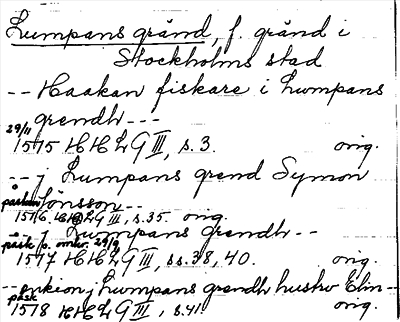 Lumpans gränd, f. gränd i
Stockholms stad
-- Haakan fiskare i Lumpans
grendh ---
29/11
1515 HHLG III, s.3. orig.
-- j Lumpans grend Symon
Jönsson --
1516 HHLG III, s.35. orig.
-- j Lumpans grendh --
påsk o. omkr. 29/9
1517 HHLG III, ss.38, 40. orig.
-- enkion j Lumpans grendh hustrv Elin --
påsk
1518 HHLG III, s.41. orig.